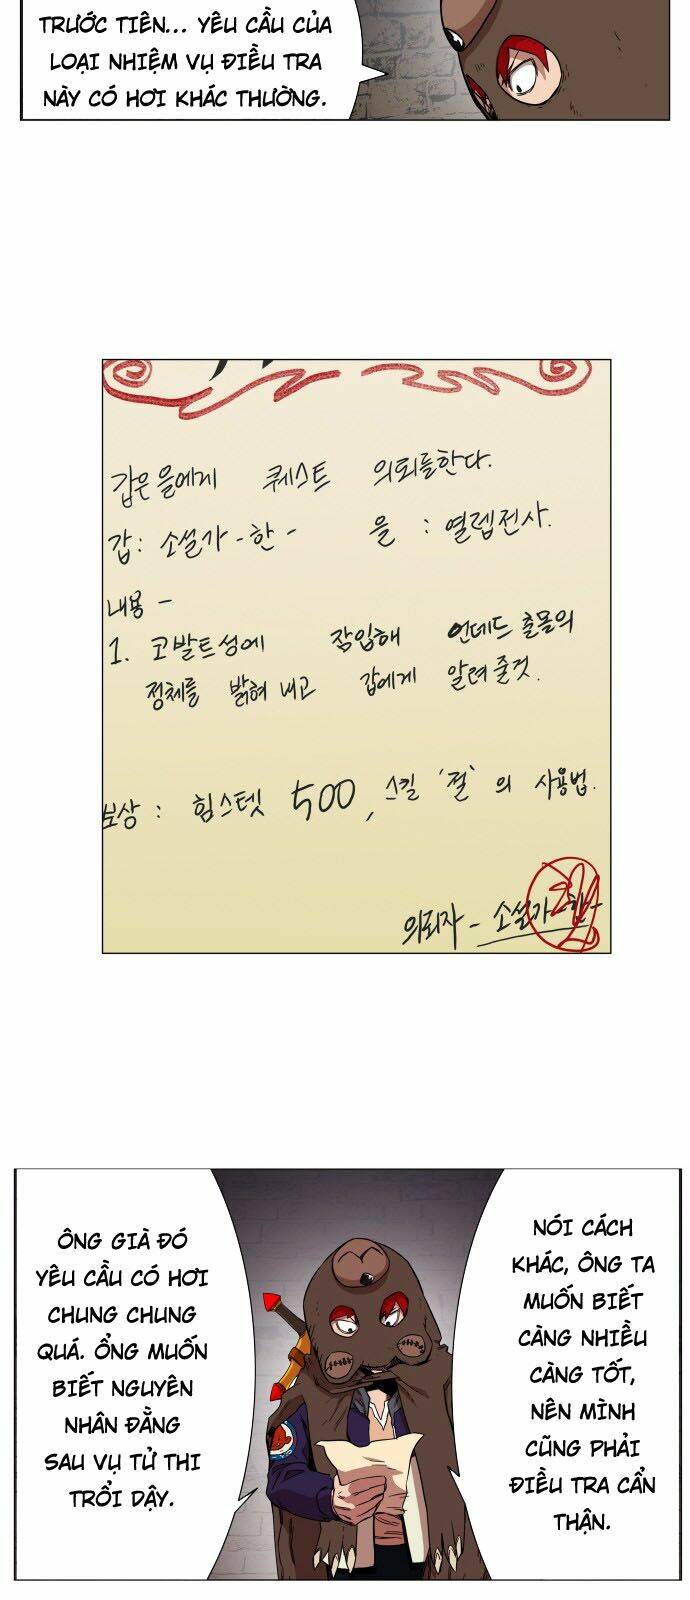 TRƯỚC TIÊN... YÊU CẦU CỦA
LOẠI NHIỆM VỤ ĐIỀU TRA
NÀY CÓ HƠI KHÁC THƯỜNG.
갑은 을에게 퀘스트 의뢰를한다.
갑: 소설가 - 한 - 을 : 열렙전사.
내용 -
1. 코발트성에 잠입해 언데드 출몰의
정체를 밝혀 내고 갑에게 알려줄것.
보상 : 힘스텟 500, 스킬 '절' 의 사용법.
의뢰자 - 소설가 - 한 -
ÔNG GIÀ ĐÓ
YÊU CẦU CÓ HƠI
CHUNG CHUNG
QUÁ. ỔNG MUỐN
BIẾT NGUYÊN
NHÂN ĐẰNG
SAU VỤ TỬ THI
TRỔI DẬY.
NÓI CÁCH
KHÁC, ÔNG TA
MUỐN BIẾT
CÀNG NHIỀU
CÀNG TỐT,
NÊN MÌNH
CŨNG PHẢI
ĐIỀU TRA CẨN
THẬN.